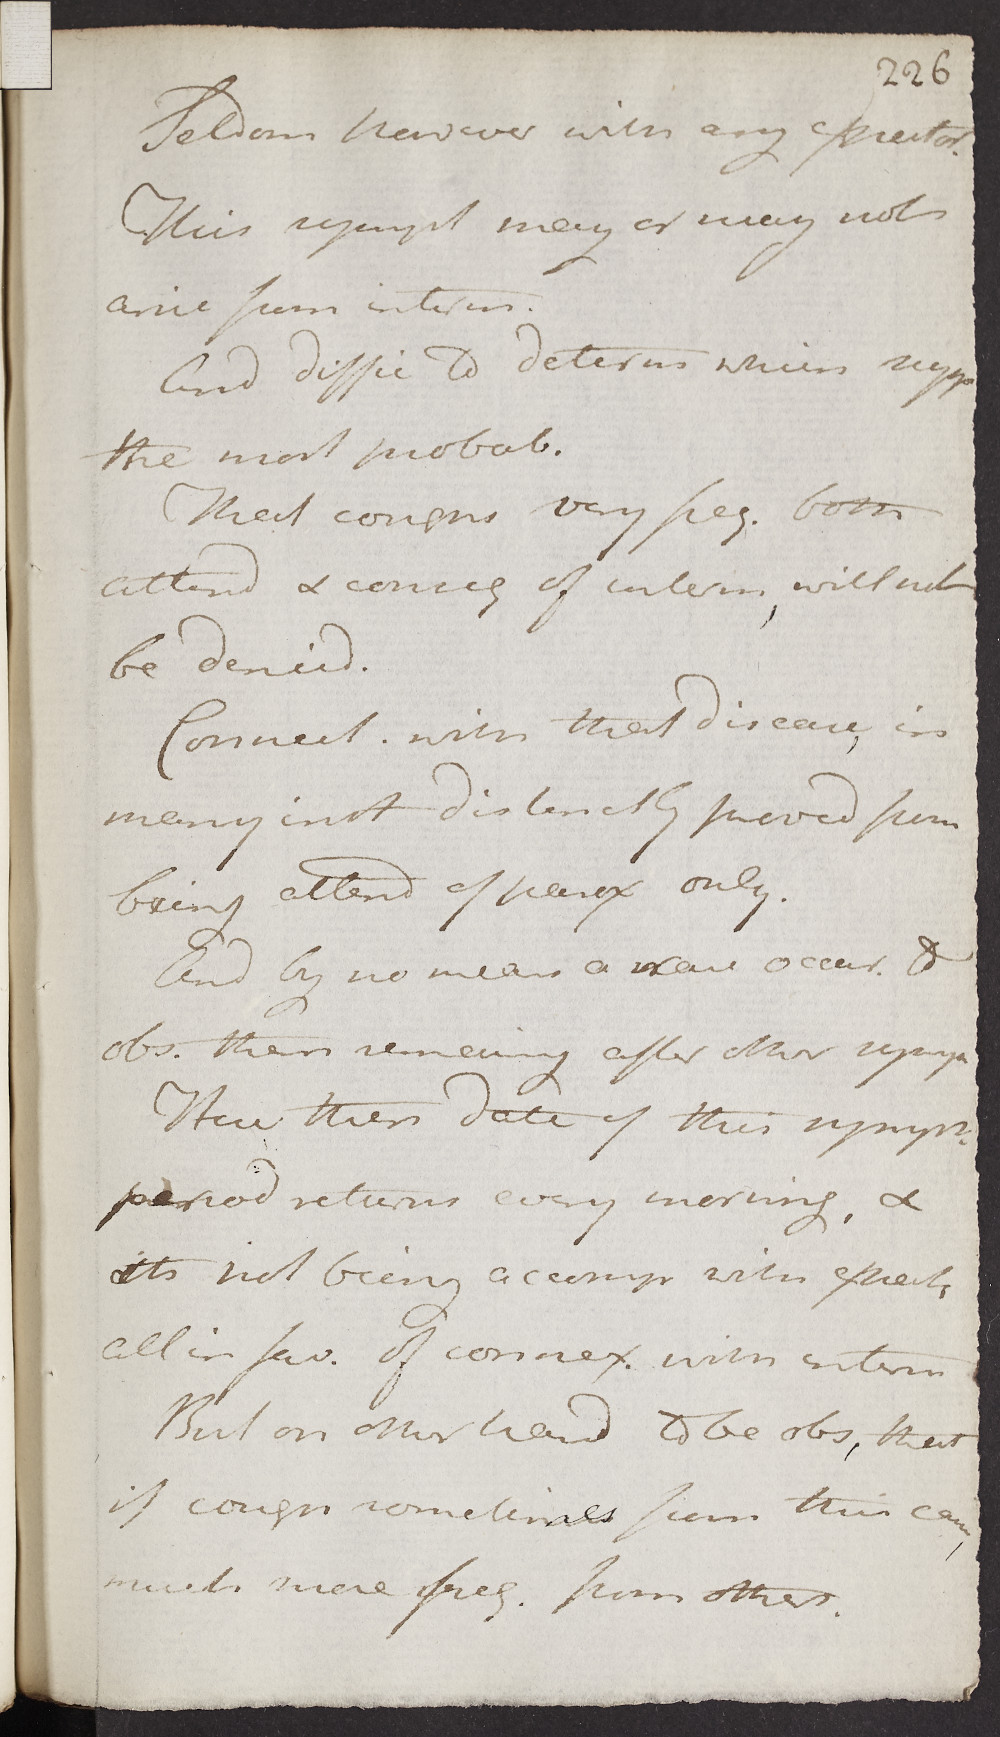 226
Seldom however with any expector.
This sympt may or may not
arise from interm.
And diffic to determ which supp
the most probab.
That coughs very freq. both
attend & conseq of interm, will not
be denied.
Connect. with that disease, in
many inst distinctly proved from
being attend of parox only.
And by no means a rare occur. to
obs. them remaining after other symp
Here then date of this symp.
period returns every morning, &
its not being accomp with expect,
all in fav. of connex. with interm
But on other hand to be obs, that
if cough sometimes from this cau,
much more freq. from others.